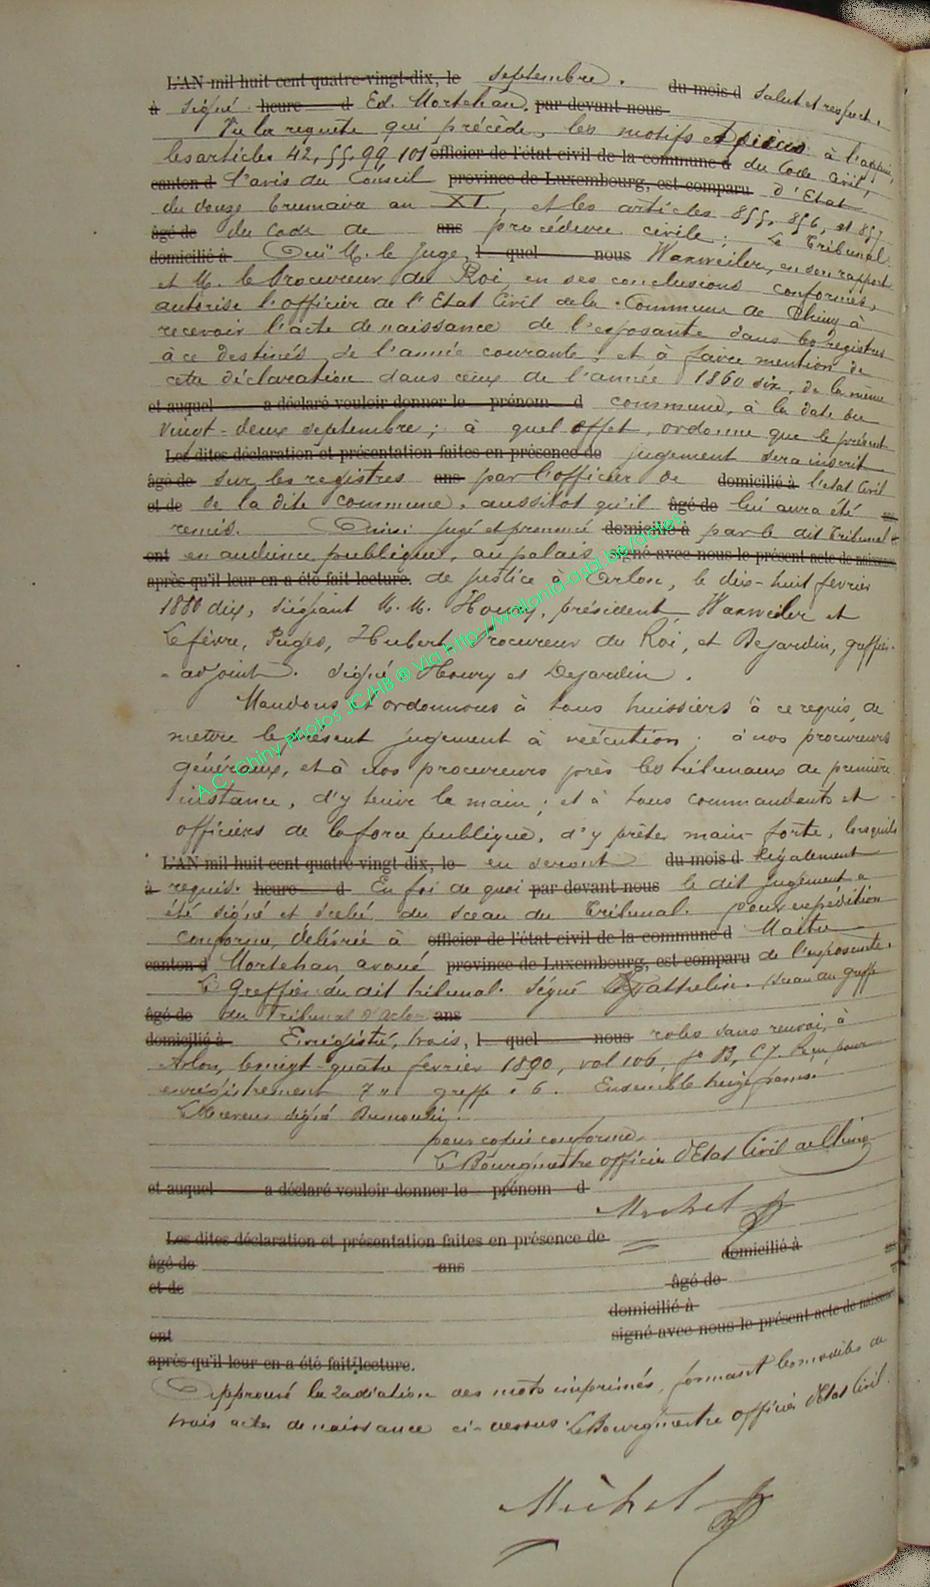 L'AN mil huit cent quatre-vingt-dix, le septembre. du mois d salut et respect.
à signé heure d Ed. Mortehan. par devant nous
Vu la requête qui précède, les motifs et pièces à l'appui,
les articles 42, 55, 99, 101 officier de l'état civil de la commune d du Code Civil,
canton d l'avis du Conseil province de Luxembourg, est comparu d'Etat
du douze brumaire an XI, et les articles 855, 856, et 857
âgé de du Code de ans procédure civile; Le Tribunal
domicilié à Ouï M. le Juge, l quel nous Wanweiler, en son rapport
et M. le Procureur du Roi, en ses conclusions conformes,
autorise l'officier de l'Etat Civil de la Commune de Chiny à
recevoir l'acte de naissance de l'exposante dans les registres
à ce destinés, de l'année courante; et à faire mention de
cette déclaration dans ceux de l'année 1860 six, de la même
et auquel a déclaré vouloir donner le prénom d commune, à la date du
vingt-deux septembre; à quel effet, ordonne que le présent
Les dites déclaration et présentation faites en présence de jugement sera inscrit
âgé de sur les registres ans par l'officier de domicilié à l'état Civil
et de de la dite commune, aussitôt qu'il âgé de lui aura été
remis. Ainsi jugé et prononcé domicilié à par le dit Tribunal
ont en audience publique, au palais signé avec nous le présent acte de naissance
après qu'il leur en a été fait lecture. de justice à Arlon, le dix-huit février
1880 dix, siégeant M. M. Houry, président, Wanweiler et
Lefèvre, Juges, Hubert Procureur du Roi, et Dejardin, greffier
adjoint. Signé Houry et Dejardin.
Mandons et ordonnons à tous huissiers à ce requis, de
mettre le présent jugement à exécution; à nos procureurs
généraux, et à nos procureurs près les tribunaux de première
instance, d'y tenir la main; et à tous commandants et
officiers de la force publique, d'y prêter main-forte, lorsqu'ils
L'AN mil huit cent quatre-vingt-dix, le en seront du mois d légalement
à requis. heure d En foi de quoi par devant nous le dit jugement a
été signé et scellé du sceau du Tribunal. pour expédition
conforme, délivrée à officier de l'état civil de la commune d Maître
canton d Mortehan avoué province de Luxembourg, est comparu de l'exposante.
Le Greffier du dit tribunal. Signé sceau du greffe
âgé de du Tribunal d'Arlon ans
domicilié à Enregistré, trois, l quel nous rôles sans renvoi, à
Arlon, le vingt-quatre février 1890, vol 106, f° 13, C 7. Reçu pour
enregistrement 7 " greffe . 6. Ensemble treize francs.
Le Receveur signé
pour copie conforme
Le Bourgmestre officier d'Etat Civil de Chiny
et auquel a déclaré vouloir donner le prénom d
Michel
Les dites déclaration et présentation faites en présence de
domicilié à
âgé de ans
et de âgé de
domicilié à
ont signé avec nous le présent acte de naissance
après qu'il leur en a été fait lecture.
Approuvé la radiation des mots imprimés, formant les modèles de
trois actes de naissance ci-dessus. Le Bourgmestre officier d'Etat Civil
Michel
A.C. Chiny Photos JC/HB ® Via http://wallonia-asbl.be/actes